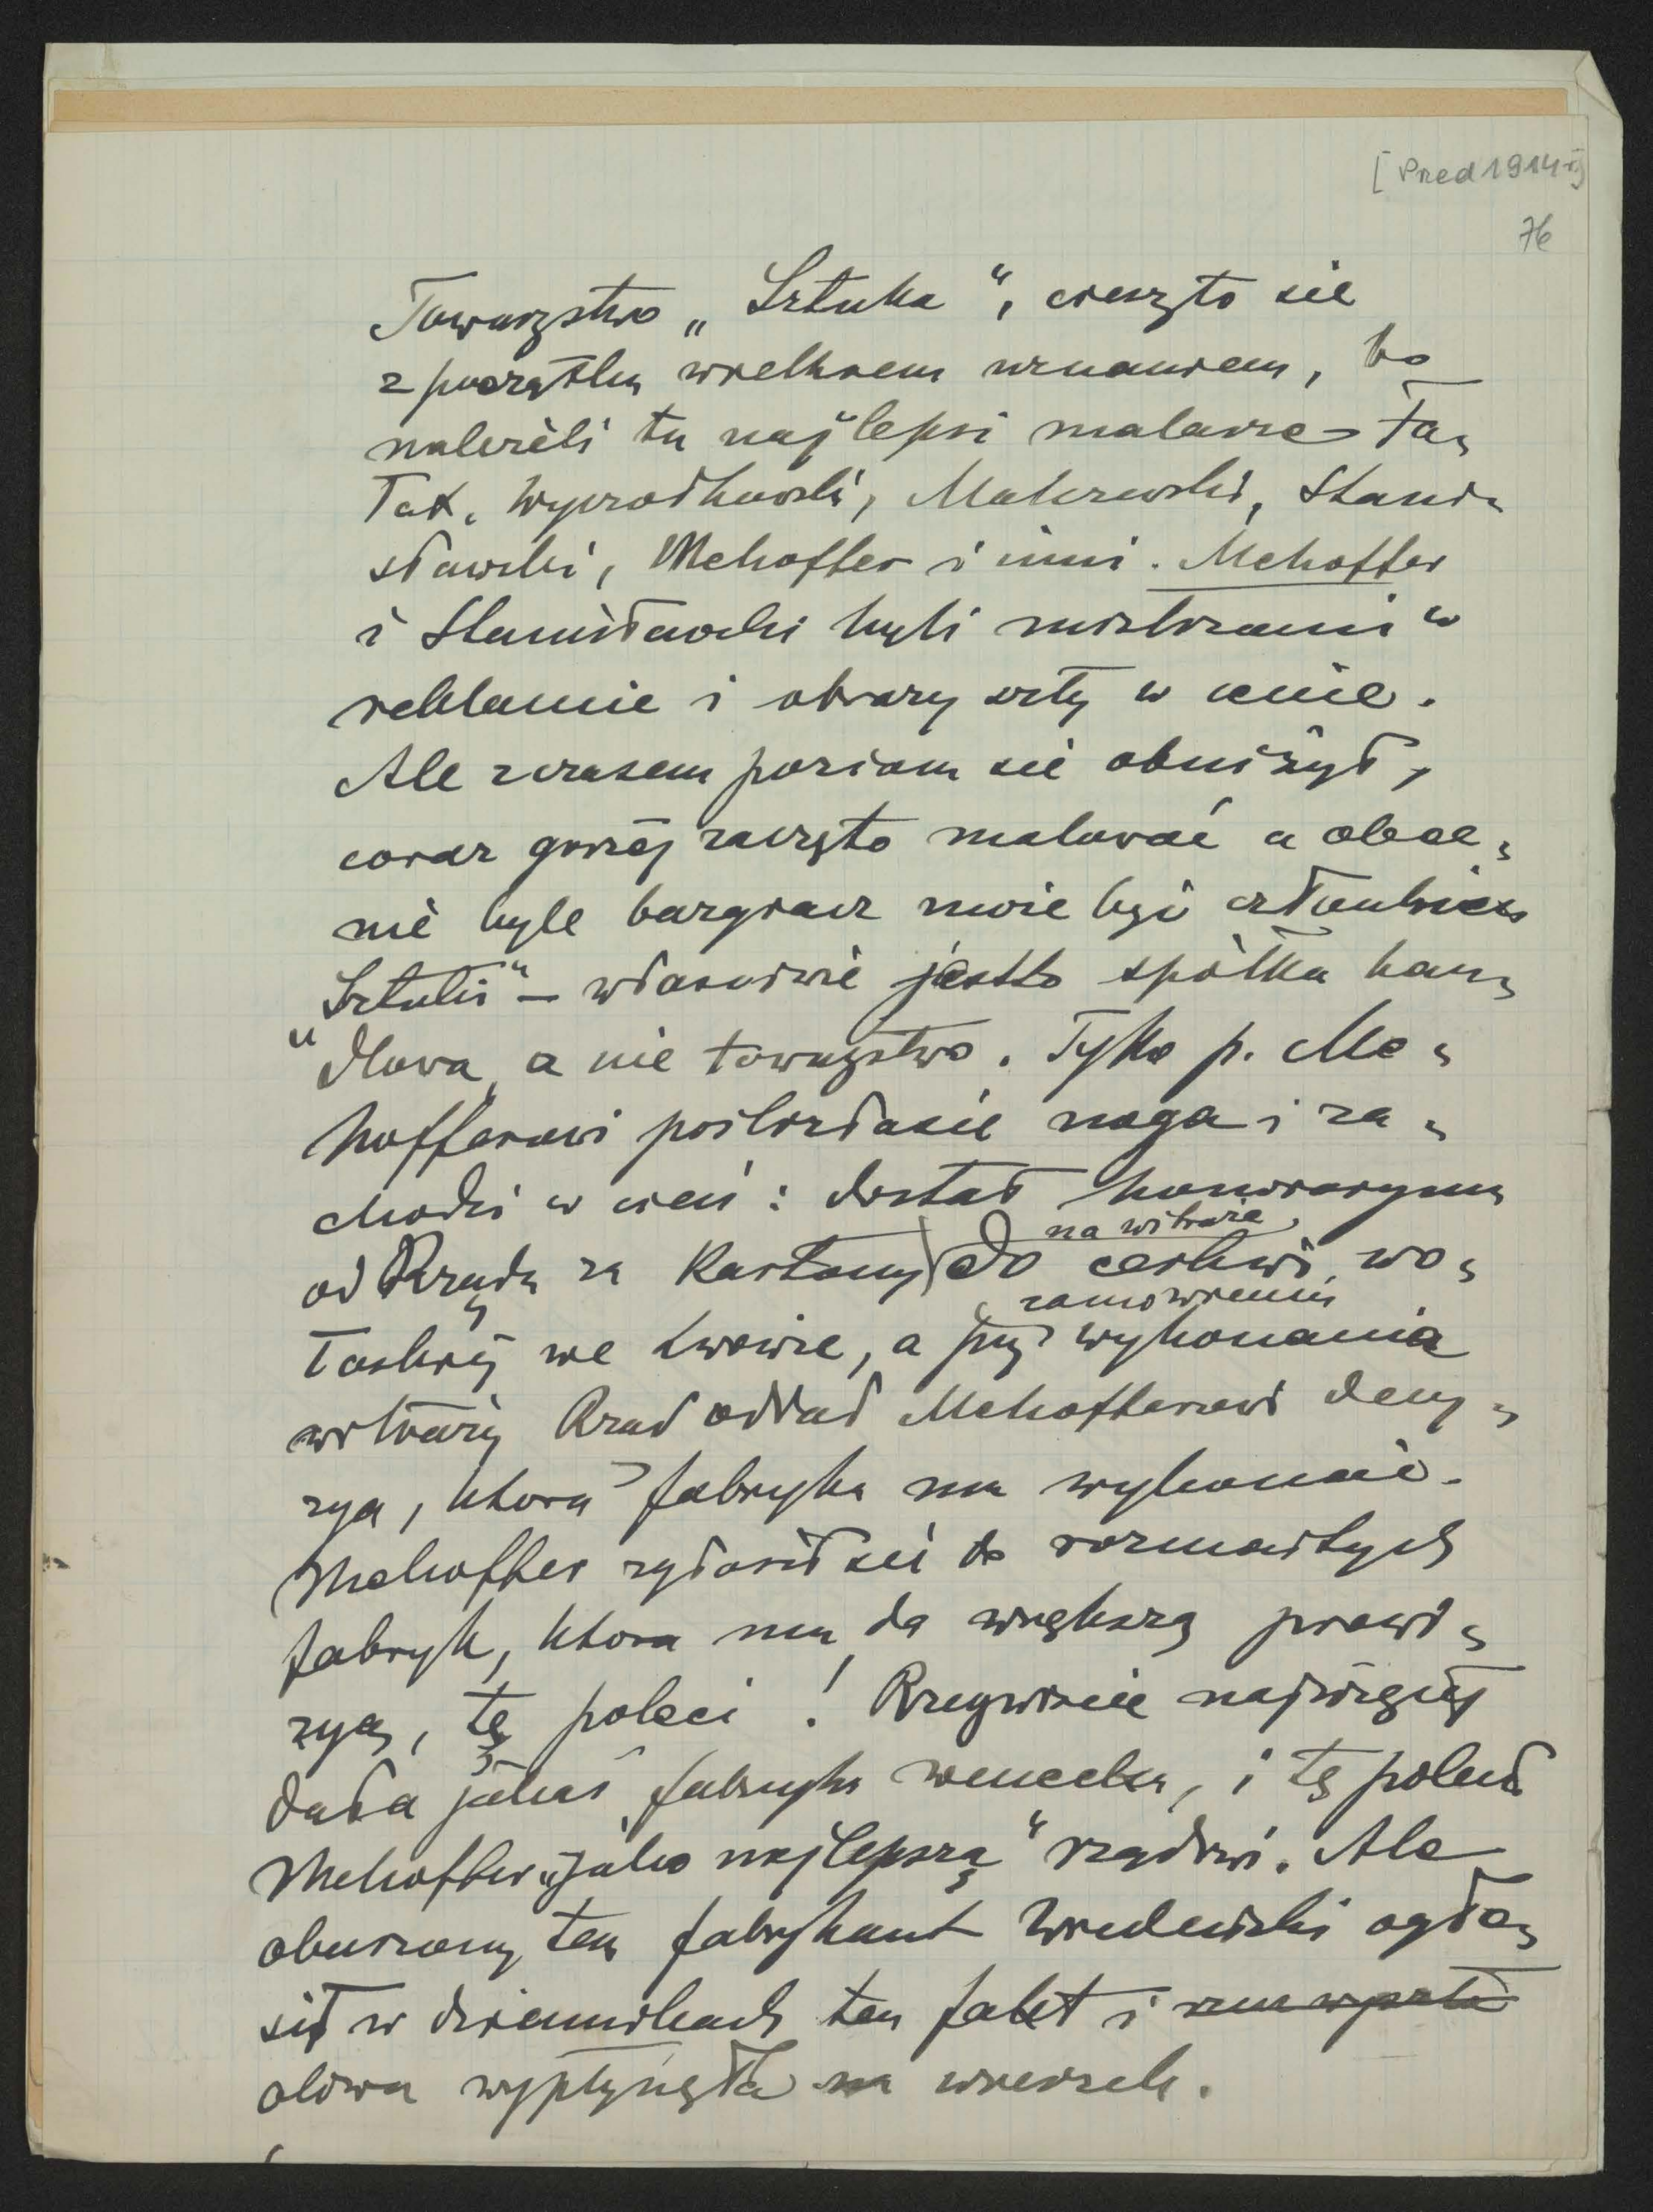 [Przed 1914 r]
76
Towarzystwo „Sztuka“, cieszyło sie
z początku wielkiem uznaniem, bo
należeli tu najlepsi malarze Fa„
łat, Wyczółkowski, Malczewski, Stani„
sławski, Mehoffer i inni. Mehoffer
i Stanisławski byli mistrzami w
reklamie i obrazy szły w cenie.
Ale z czasem poziom sie obniżył,
coraz gorzéj zaczęto malować a obec„
nie byle bazgracz może być członkiem
„Sztuki“ – własciwie jestto spółka han„
dlowa, a nie towarzystwo. Tylko p. Me„
hofferowi pośliznęła sie noga i za„
chodzi w cień: dostał honoraryum
od Rządu za Kartony do cerkwi wo„
na witraże,
łoskiéj we Lwowie, a przy wykonania
zamówieniu
witraży Rząd oddał Mehofferowi decy„
zya, która fabryka ma wykonać.
Mehoffer zgłosił sié do rozmaitych
fabryk, ktora mu da większą prowi„
zyą, tę poleci! Rzeczywiscie najwięcéj
dała jakaś fabryka wenecka, i tę polecił
Mehoffer „jako najlepszą“ rządowi. Ale
oburzony tem fabrykant Żeleński ogło„
sił w dziennikach ten fakt i
oliwa wypłynęła na wierzch.